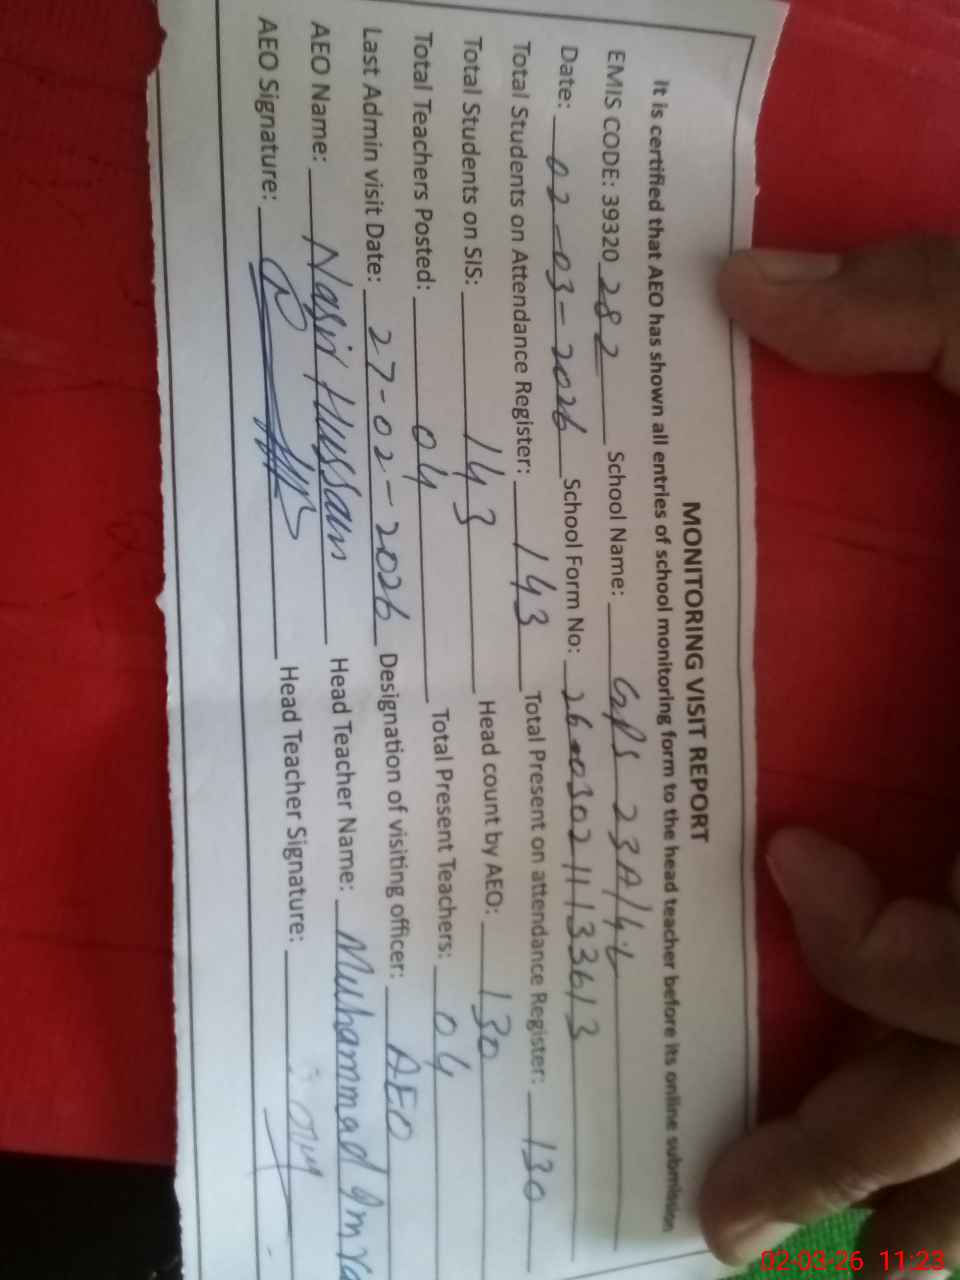 MONITORING VISIT REPORT
It is certified that AEO has shown all entries of school monitoring form to the head teacher before its online submission
EMIS CODE: 39320 282 School Name: GPS 23A/4-L
Date: 02-03-2026 School Form No: 26-030211133613
Total Students on Attendance Register: 143 Total Present on attendance Register: 130
Total Students on SIS: 143 Head count by AEO: 130
Total Teachers Posted: 04 Total Present Teachers: 04
Last Admin visit Date: 27-02-2026 Designation of visiting officer: AEO
AEO Name: Nasir Hussain Head Teacher Name: Muhammad Imra
AEO Signature: Head Teacher Signature:
02-03-26 11:23